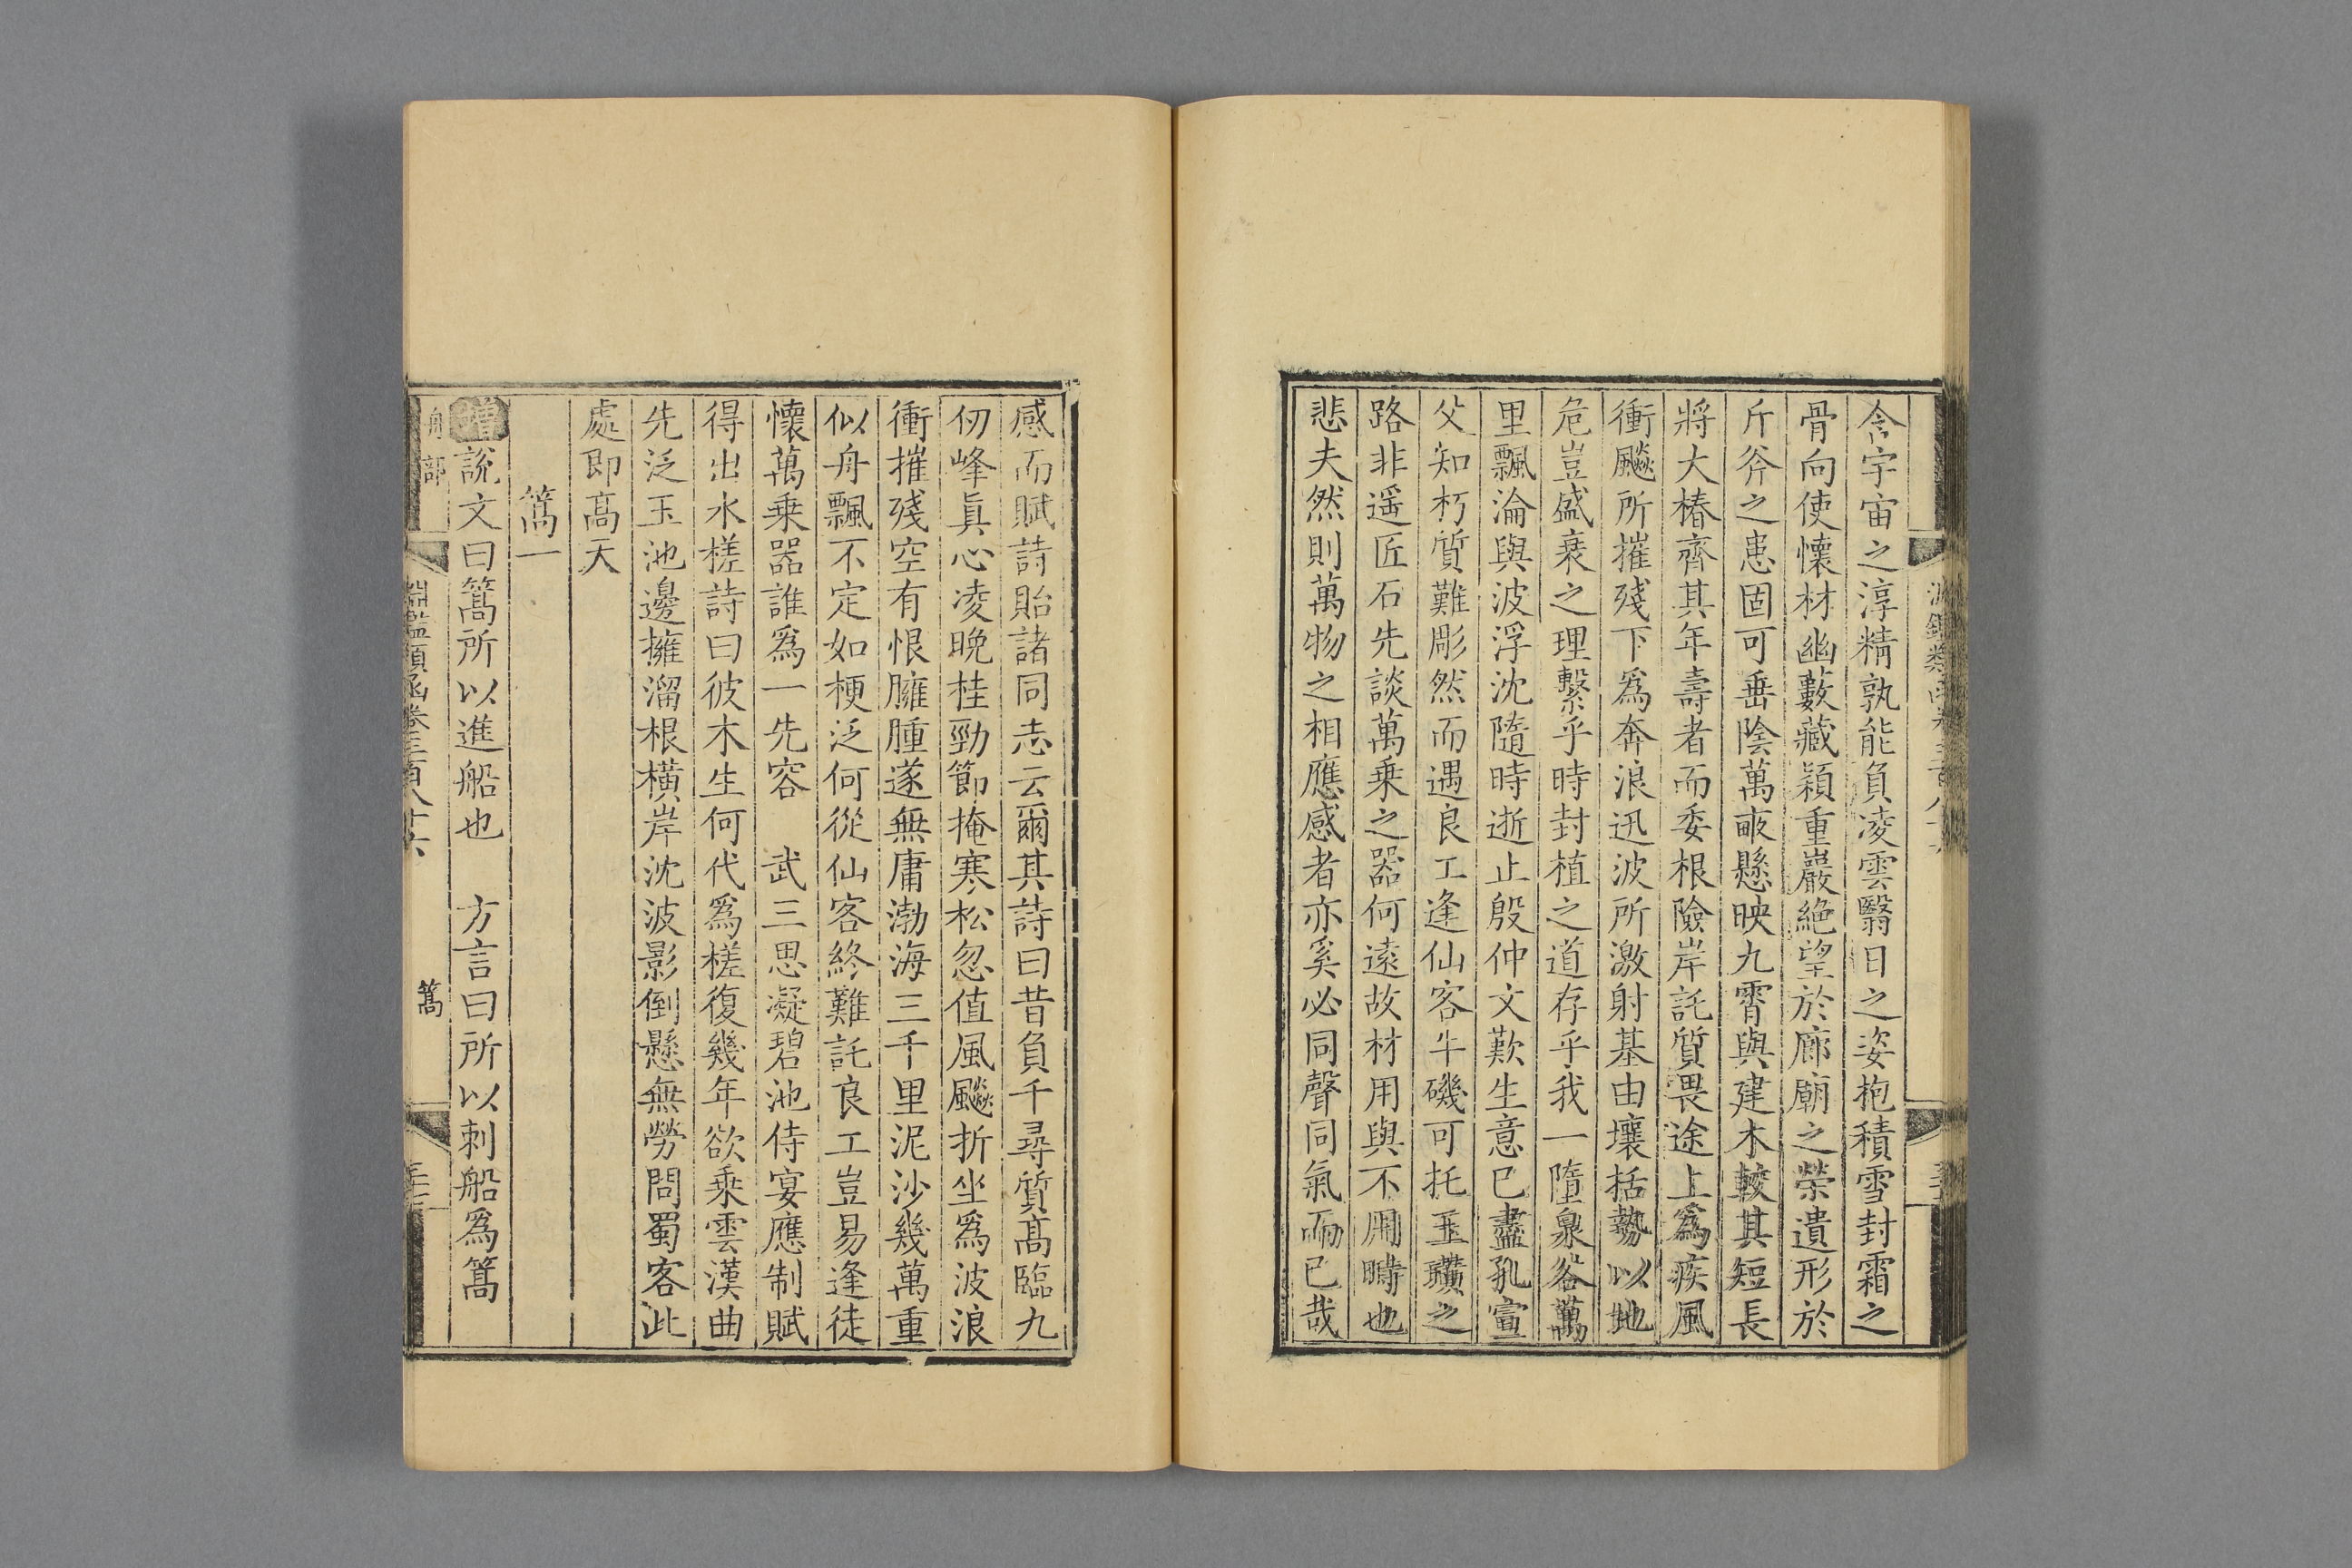 含宇宙之淳精孰能負凌雲翳日之姿抱積雪封霜之
骨向使懷材幽藪藏穎重巖絕望於廊廟之榮遺形於
斤斧之患固可垂陰萬畞懸映九霄與建木較其短長
將大椿齊其年壽者而委根險岸託質畏途上爲疾風
衝飈所摧殘下爲奔浪迅波所激射基由壤括勢以地
危豈盛衰之理繫乎時封植之道存乎我一墮泉谷萬
里飄淪與波浮沈隨時逝止殷仲文歎生意已盡孔宣
父知朽質難彫然而遇良工逢仙客牛磯可托玉璜之
路非遥匠石先談萬乗之器何遠故材用與不用時也
悲夫然則萬物之相應感者亦奚必同聲同氣而已哉
感而賦詩貽諸同志云爾其詩曰昔負千尋質髙臨九
仞峰眞心凌晩桂勁節掩寒松忽值風飈折坐爲波浪
衝摧殘空有恨臃腫遂無庸渤海三千里泥沙幾萬重
似舟飄不定如梗泛何從仙客終難託良工豈易逢徒
懷萬乗器誰爲一先容 武三思凝碧池侍宴應制賦
得出水槎詩曰彼木生何代爲槎復幾年欲乗雲漢曲
先泛玉池邊擁溜根橫岸沈波影倒懸無勞問蜀客此
處即髙天
篙一
增說文曰篙所以進船也 方言曰所以刺船爲篙
舟部
淵鑑類函卷三百八十六
篙